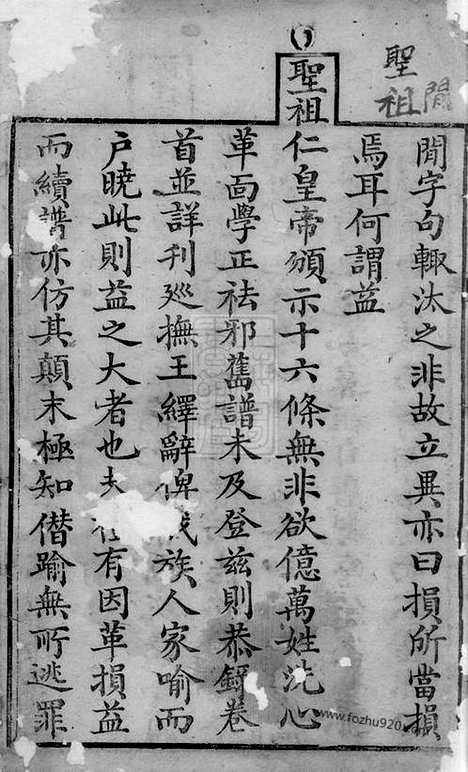 閒
聖祖
閒字句輙汰之非故立異亦曰損所當損
焉耳何謂益
聖祖仁皇帝頒示十六條無非欲億萬姓洗心
革面學正祛邪舊譜未及登兹則恭錄卷
首並詳刋廵撫王繹辭俾我族人家喻而
户曉此則益之大者也夫有因革損益
而續譜亦仿其顛末極知僭踰無所逃罪
www.fozhu920.com